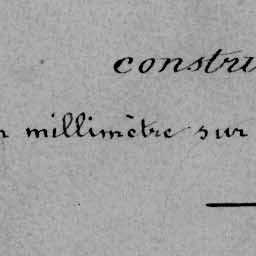 constru
n millimètre sur